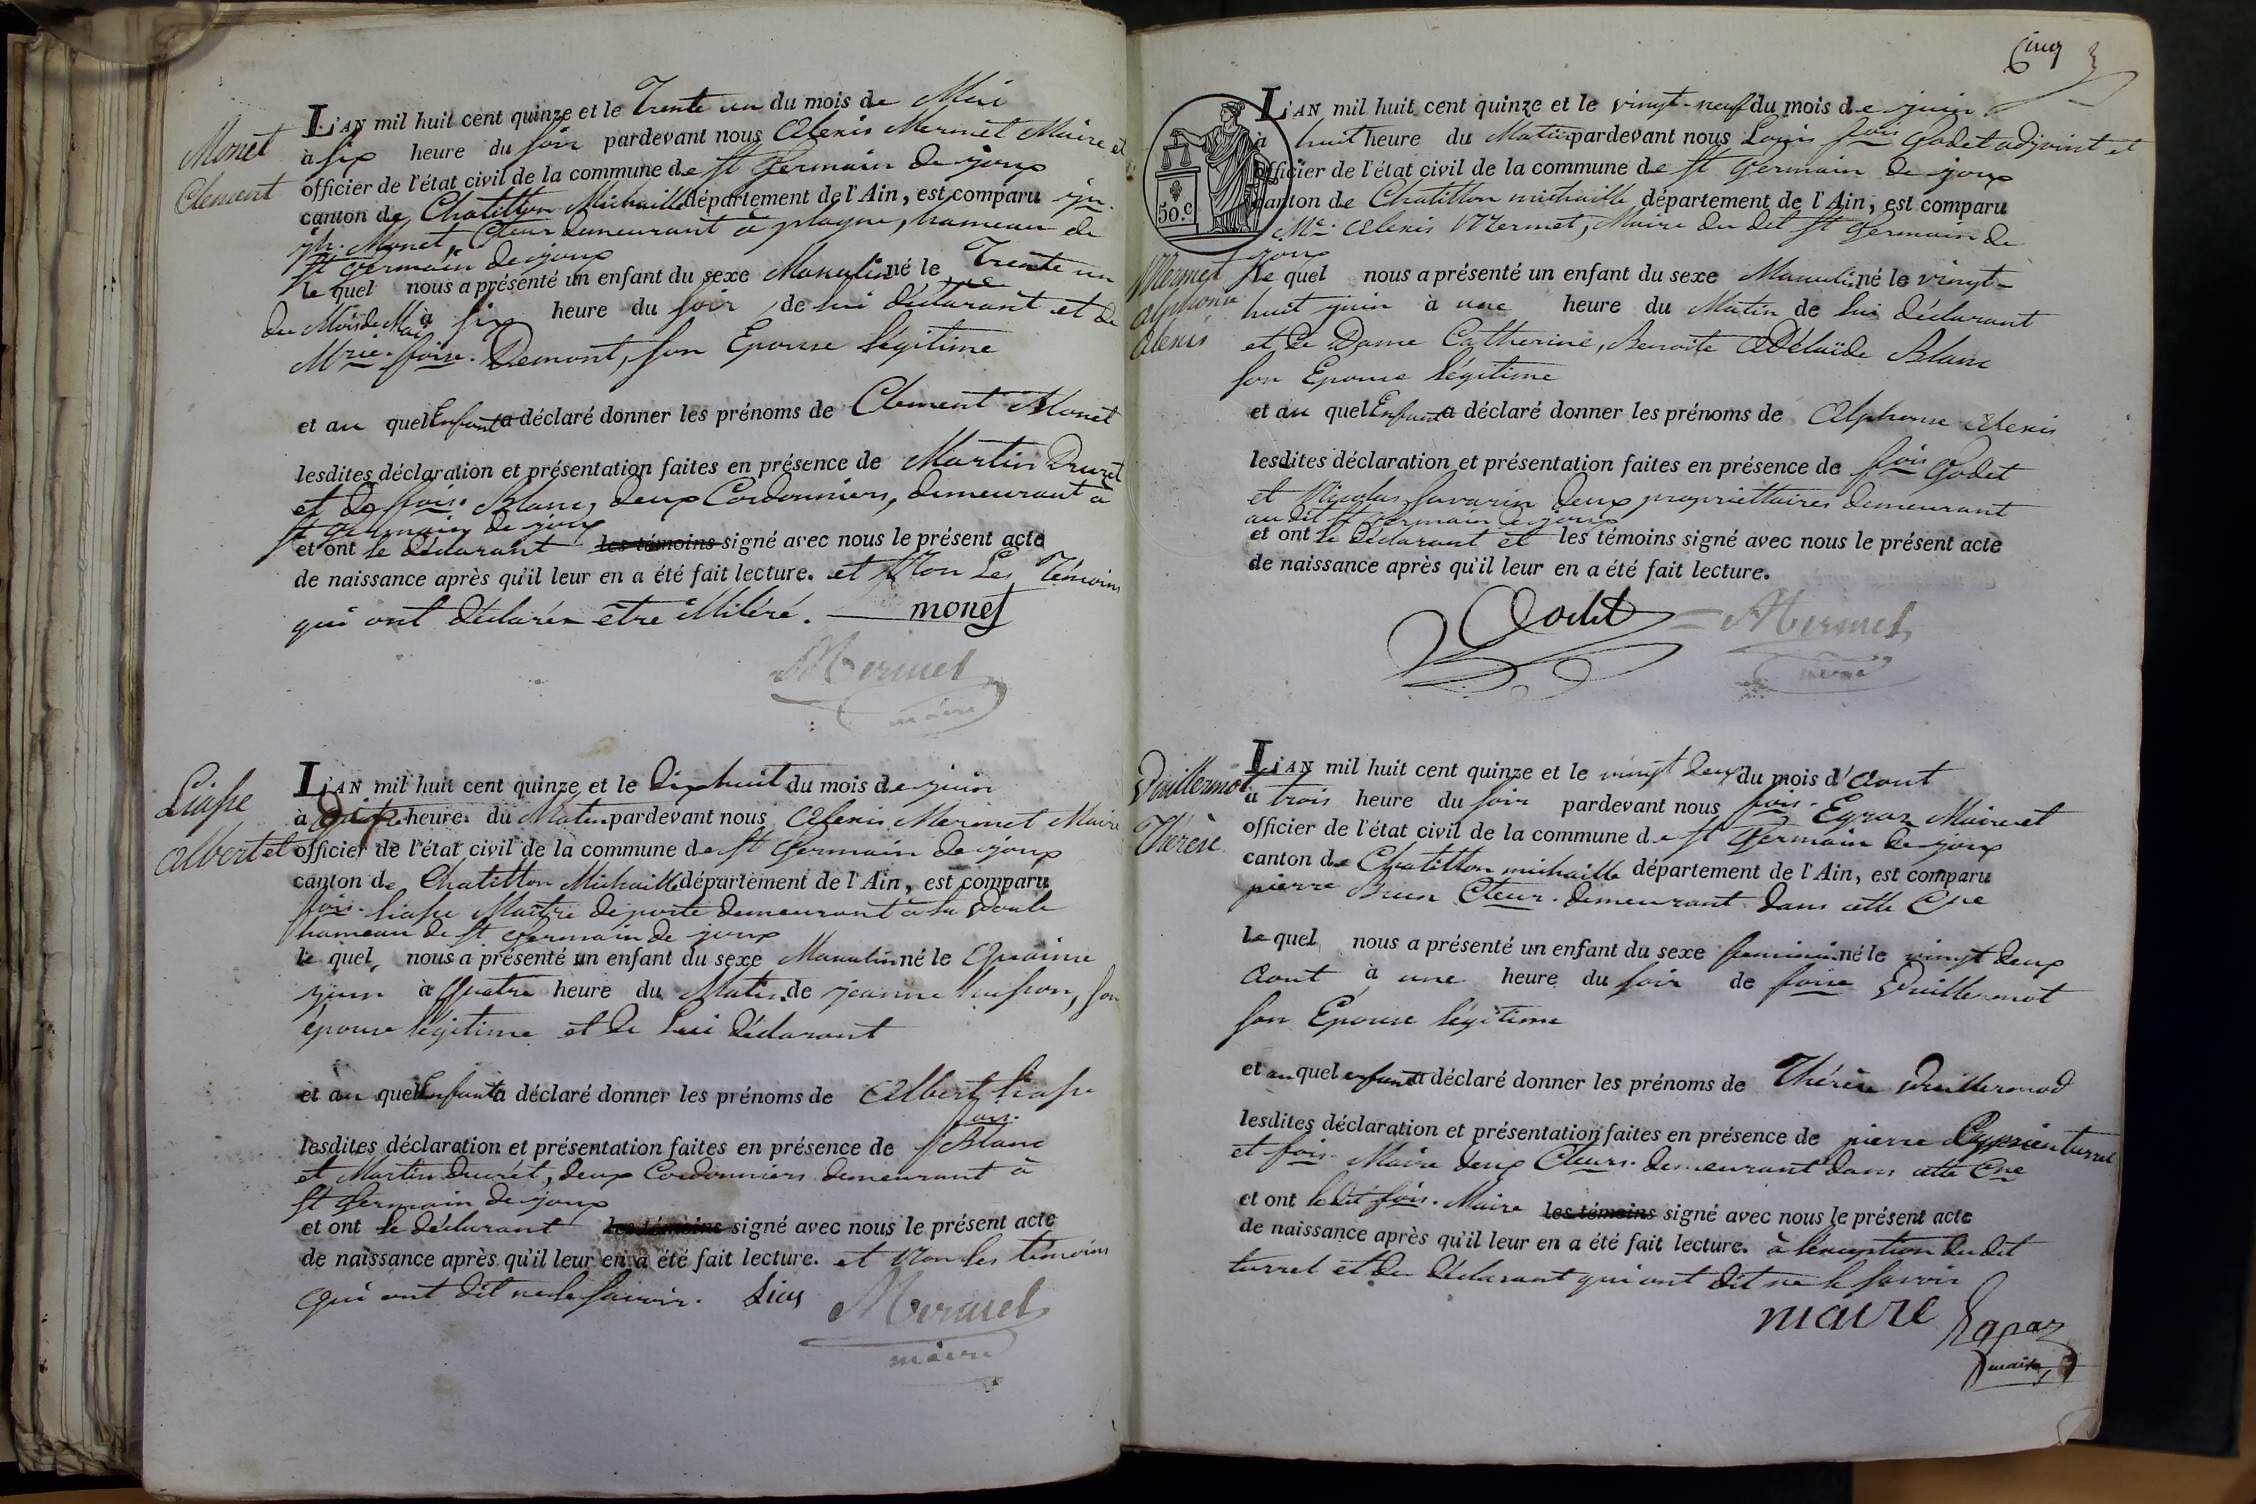 Monet
Clement
L'AN mil huit cent quinze et le Trente un du mois de Mai
à six heure du soir pardevant nous Alexis Mermet Maire et
officier de l'état civil de la commune de St Germain de joux
canton de Chatillon Michaille département de l'Ain, est comparu jn.
ph. Monet, Cteur demeurant à plagne, hameau de
St Germain de joux
le quel nous a présenté un enfant du sexe Masculin né le Trente un
du Mois de Mai à six heure du soir, de lui déclarant et de
Mrie. foise. Demont, son Epouse légitime
et au quel Enfant a déclaré donner les prénoms de Clement Monet
lesdites déclaration et présentation faites en présence de Martin Ducret
et de fois. Blanc, deux Cordonniers, demeurant à
St Germain de joux
et ont le déclarant les témoins signé avec nous le présent acte
de naissance après qu'il leur en a été fait lecture. et Non Les Témoins
qui ont déclarér être illiteré. monet
AMermet
maire
Liasse
albert
L'AN mil huit cent quinze et le dix huit du mois de juin
à heure du Matin pardevant nous Alexis Mermet Maire
et officier de l'état civil de la commune de St Germain de joux
canton de Chatillon Michaille département de l'Ain, est comparu
fois. liasse Maître de poste demeurant à la Voute
hameau de St Germain de joux
le quel nous a présenté un enfant du sexe Masculin né le Quainne
juin à Quatre heure du Matin de jeanne son
épouse légitime et de Lui déclarant
et au quel Enfant a déclaré donner les prénoms de Albert liasse
lesdites déclaration et présentation faites en présence de fois. Blanc
et Martin Ducret, deux Cordonniers demeurant à
St Germain de joux
et ont le déclarant les témoins signé avec nous le présent acte
de naissance après qu'il leur en a été fait lecture. et Non les témoins
qui ont dit ne le savoir. Lias AMermet
maire
Cinq
50.c
L'AN mil huit cent quinze et le vingt-neuf du mois de juin
à huit heure du Matin pardevant nous Louis fois Godet adjoint et
officier de l'état civil de la commune de St Germain de joux
canton de Chatillon michaille département de l'Ain, est comparu
Mr. Alexis Mermet, Maire du dit St Germain de
joux
Mermet
alphonse
alexis
le quel nous a présenté un enfant du sexe Masculin né le vingt-
huit juin à une heure du Matin de lui déclarant
et de Dame Catherine, Benoite Adélaïde Blanc
son Epouse légitime
et au quel Enfant a déclaré donner les prénoms de Alphonse Alexis
lesdites déclaration et présentation faites en présence de fois Godet
et Nicolas Savarin deux propriettaires demeurant
au dit St Germain de joux
et ont le déclarant et les témoins signé avec nous le présent acte
de naissance après qu'il leur en a été fait lecture.
Godet AMermet
maire
Vuillermot
Thérèse
L'AN mil huit cent quinze et le vingt deux du mois d'aout
à trois heure du soir pardevant nous fois. Egraz Maire et
officier de l'état civil de la commune de St Germain de joux
canton de Chatillon michaille département de l'Ain, est comparu
pierre Brun Cteur. demeurant dans cette Cne
le quel nous a présenté un enfant du sexe feminin né le vingt deux
aout à une heure du soir de foise Vuillermot
son Epouse légitime
et au quel enfant a déclaré donner les prénoms de Thérèse Vuillermod
lesdites déclaration et présentation faites en présence de pierre Cyprien turrel
et fois. Maire deux Cteurs. demeurant dans cette Cne
et ont le dit fois. Maire les témoins signé avec nous le présent acte
de naissance après qu'il leur en a été fait lecture. à l'exception du dit
turrel et du déclarant qui ont dit ne le savoir
maire
maire